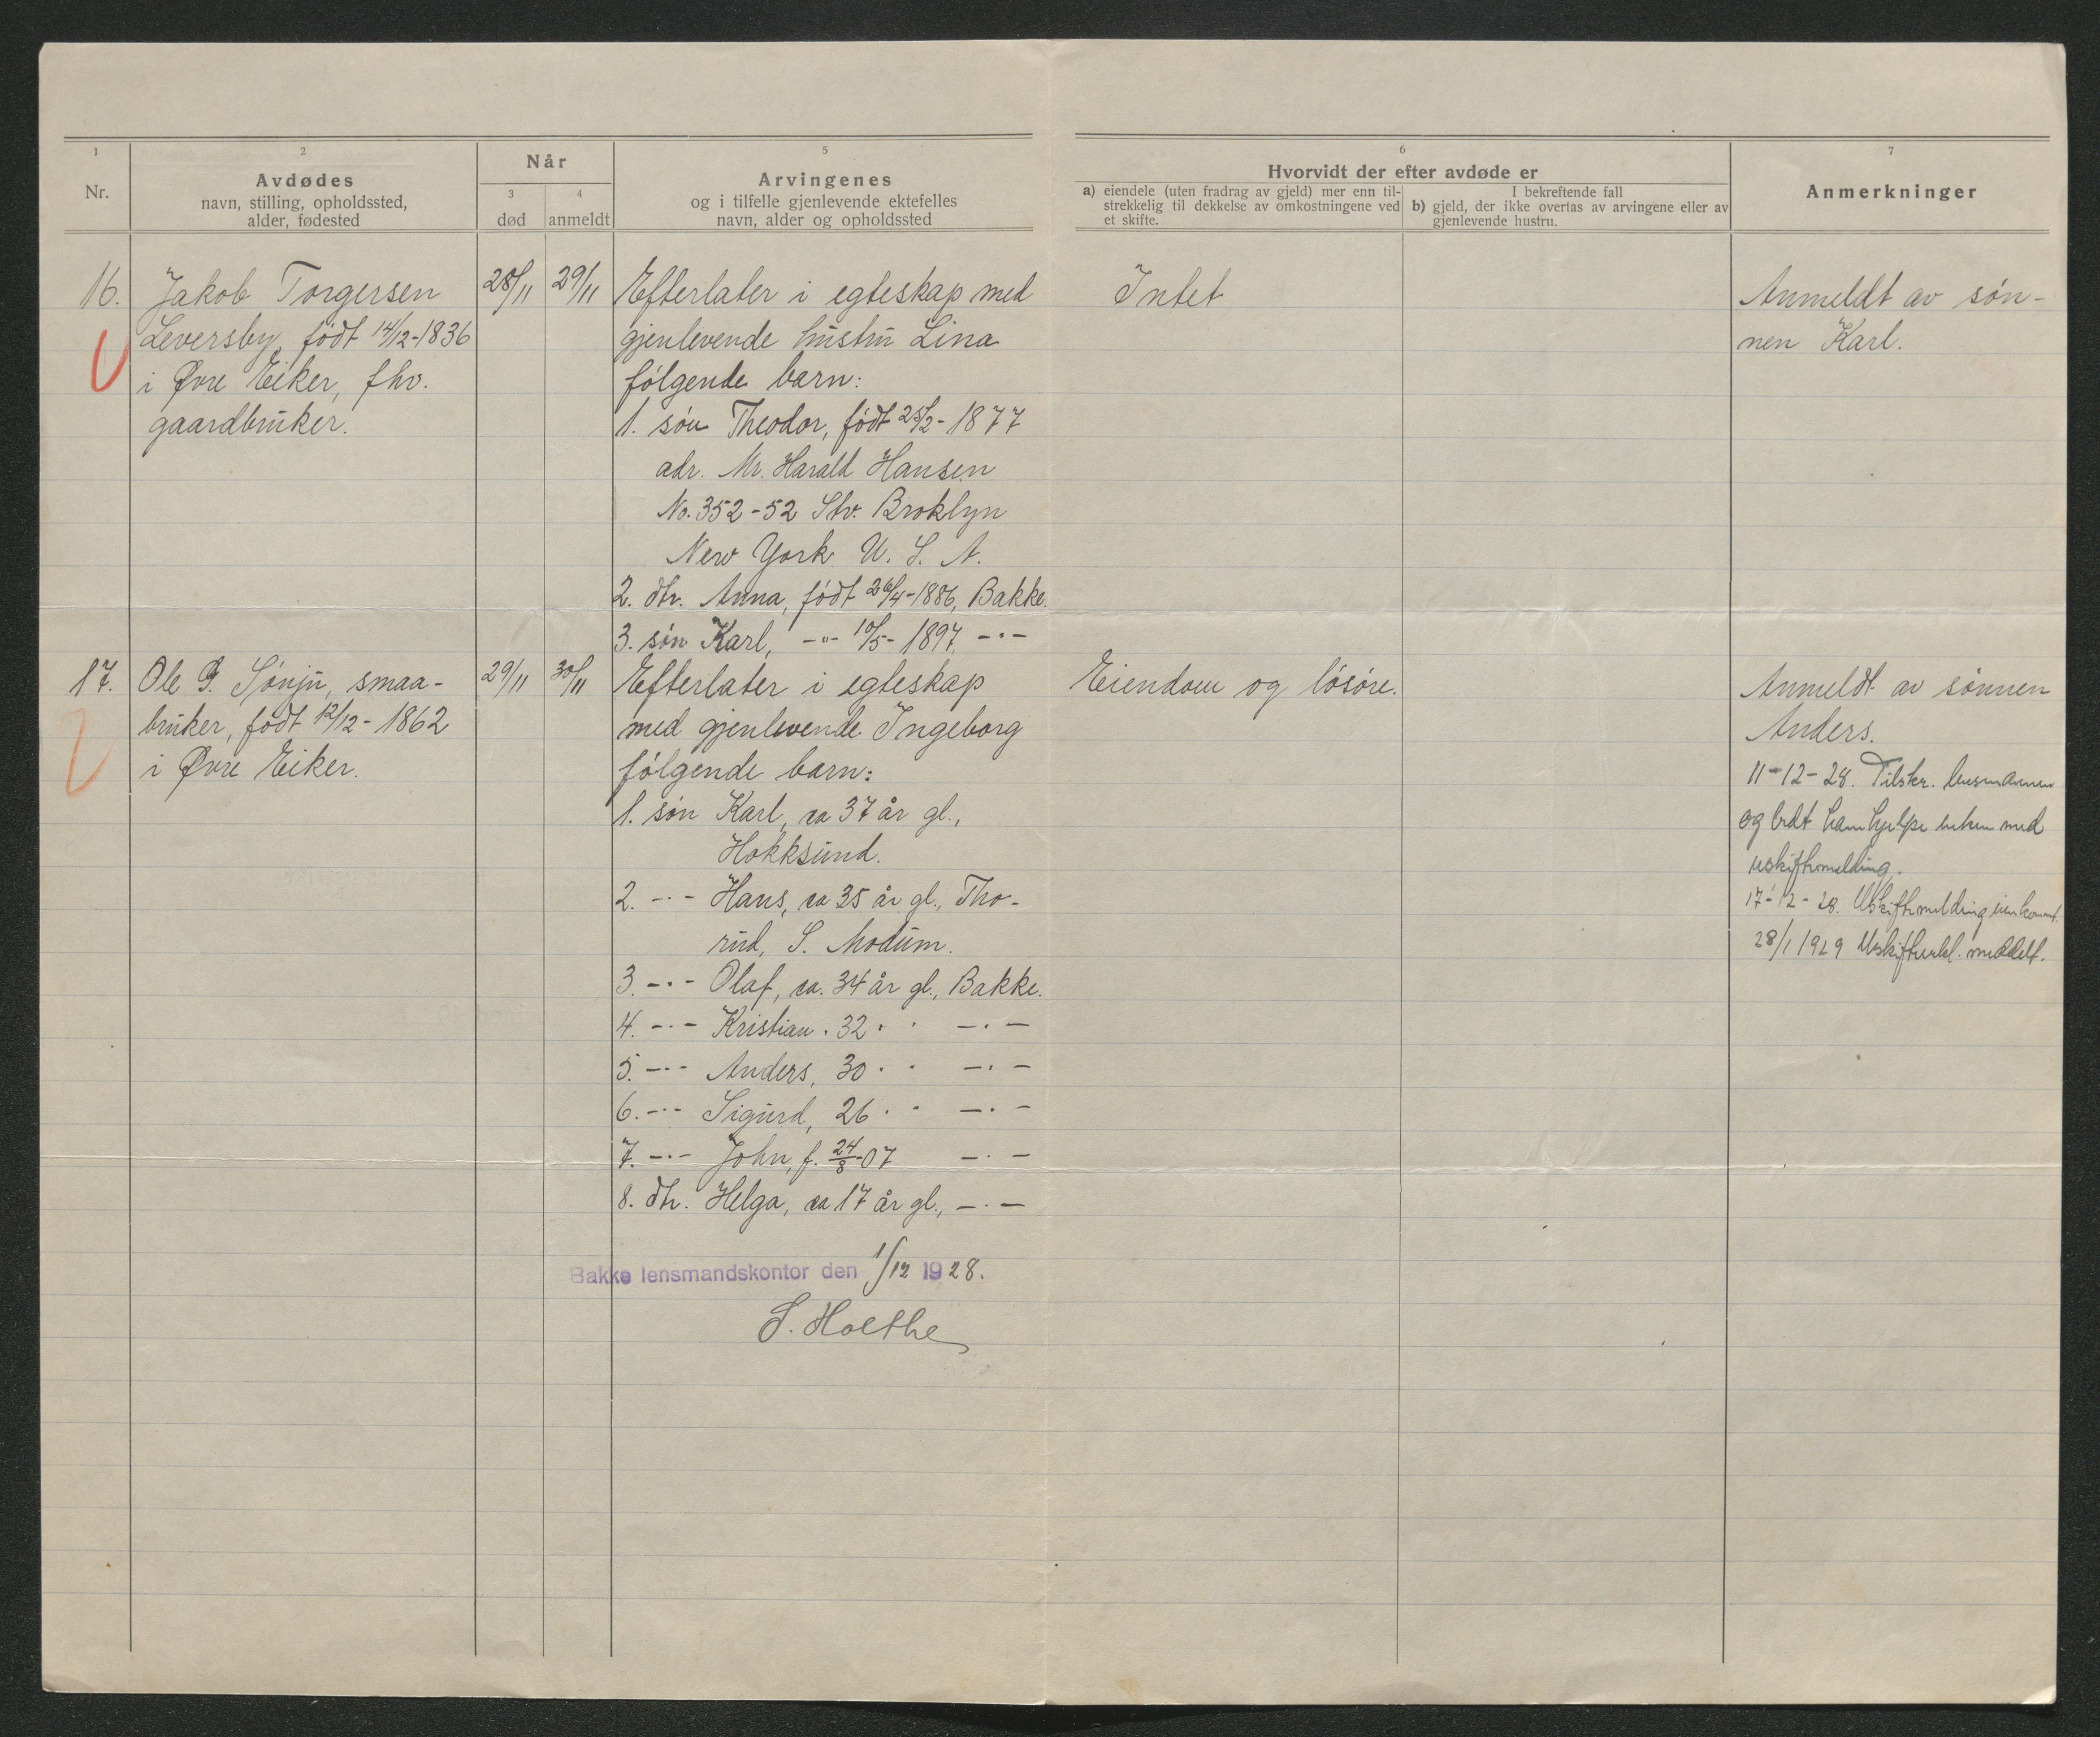 1
Nr.
2
Avdødes
navn, stilling, opholdssted,
alder, fødested
Når
3
død
4
anmeldt
5
Arvingenes
og i tilfelle gjenlevende ektefelles
navn, alder og opholdssted
6
Hvorvidt der efter avdøde er
a) eiendele (uten fradrag av gjeld) mer enn til-
strekkelig til dekkelse av omkostningene ved
et skifte.
I bekreftende fall
b) gjeld, der ikke overtas av arvingene eller av
gjenlevende hustru.
7
Anmerkninger
16.
Jakob Torgersen
Leversby, født 14/12-1836
i Øvre Eiker, fhv.
gaardbruker.
28/11
29/11
Efterlater i egteskap med
gjenlevende hustru Lina
følgende barn:
1. søn Theodor, født 25/2-1877
adr. Mr. Harald Hansen
No. 352-52 Str. Broklyn
New York U. S. A.
2. dtr. Anna, født 26/4-1886, Bakke.
3. søn Karl, -"- 10/5-1897, -"-
Intet
Anmeldt av søn-
nen Karl.
17.
Ole G. Sønju, smaa-
bruker, født 12/12-1862
i Øvre Eiker.
29/11
30/11
Efterlater i egteskap
med gjenlevende Ingeborg
følgende barn:
1. søn Karl, ca 37 år gl.,
Hokksund.
2. -"- Hans, ca 35 år gl., Tho-
rud, S. Modum.
3. -"- Olaf, ca. 34 år gl., Bakke.
4. -"- Kristian " 32 " " -"-
5. -"- Anders, 30 " " -"-
6. -"- Sigurd, 26 " " -"-
7. -"- John, f. 24/8-07 -"-
8. dtr. Helga, ca 17 år gl., -"-
Eiendom og løsøre.
Anmeldt av sønnen
Anders.
11-12-28. Tilskr. lensmannen
og bedt ham hjelpe enken med
uskiftemelding.
17-12-28. Uskiftemelding innkommet.
28/1 1929 Uskifteerkl. meddelt.
Bakke lensmandskontor den 1/12 1928.
S. Holthe